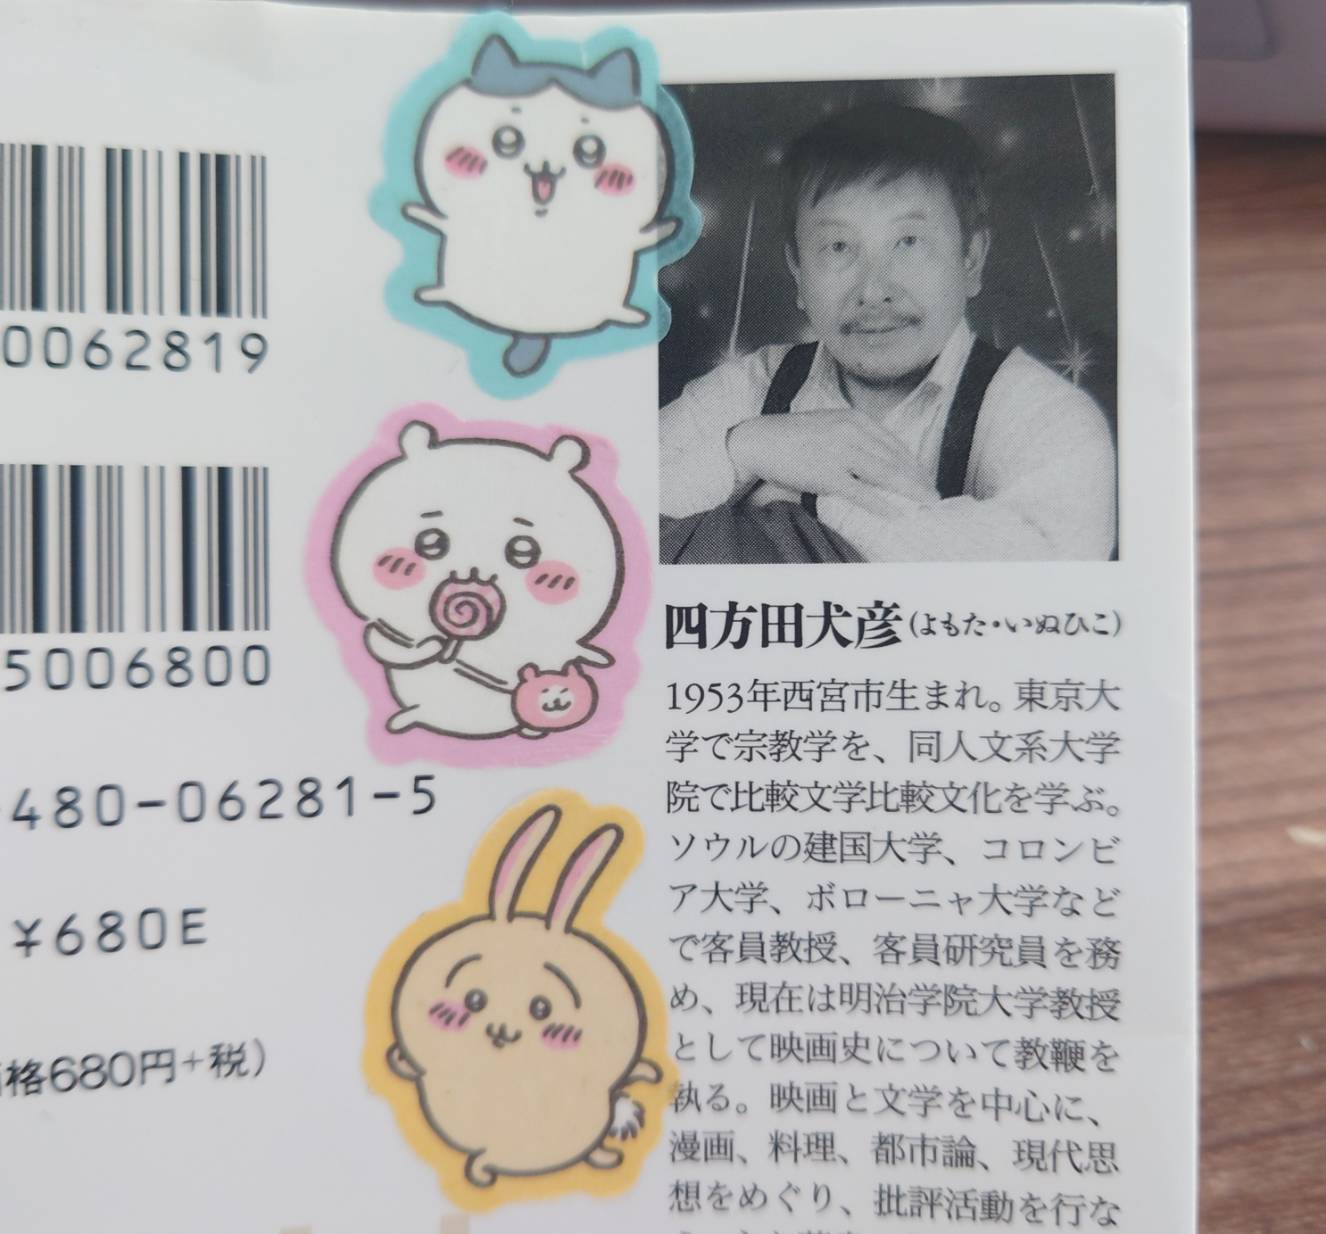 0062819
5006800
480-06281-5
¥680E
格680円+税)
四方田犬彦(よもた・いぬひこ)
1953年西宮市生まれ。東京大
学で宗教学を、同人文系大学
院で比較文学比較文化を学ぶ。
ソウルの建国大学、コロンビ
ア大学、ボローニャ大学など
で客員教授、客員研究員を務
め、現在は明治学院大学教授
として映画史について教鞭を
執る。映画と文学を中心に、
漫画、料理、都市論、現代思
想をめぐり、批評活動を行な